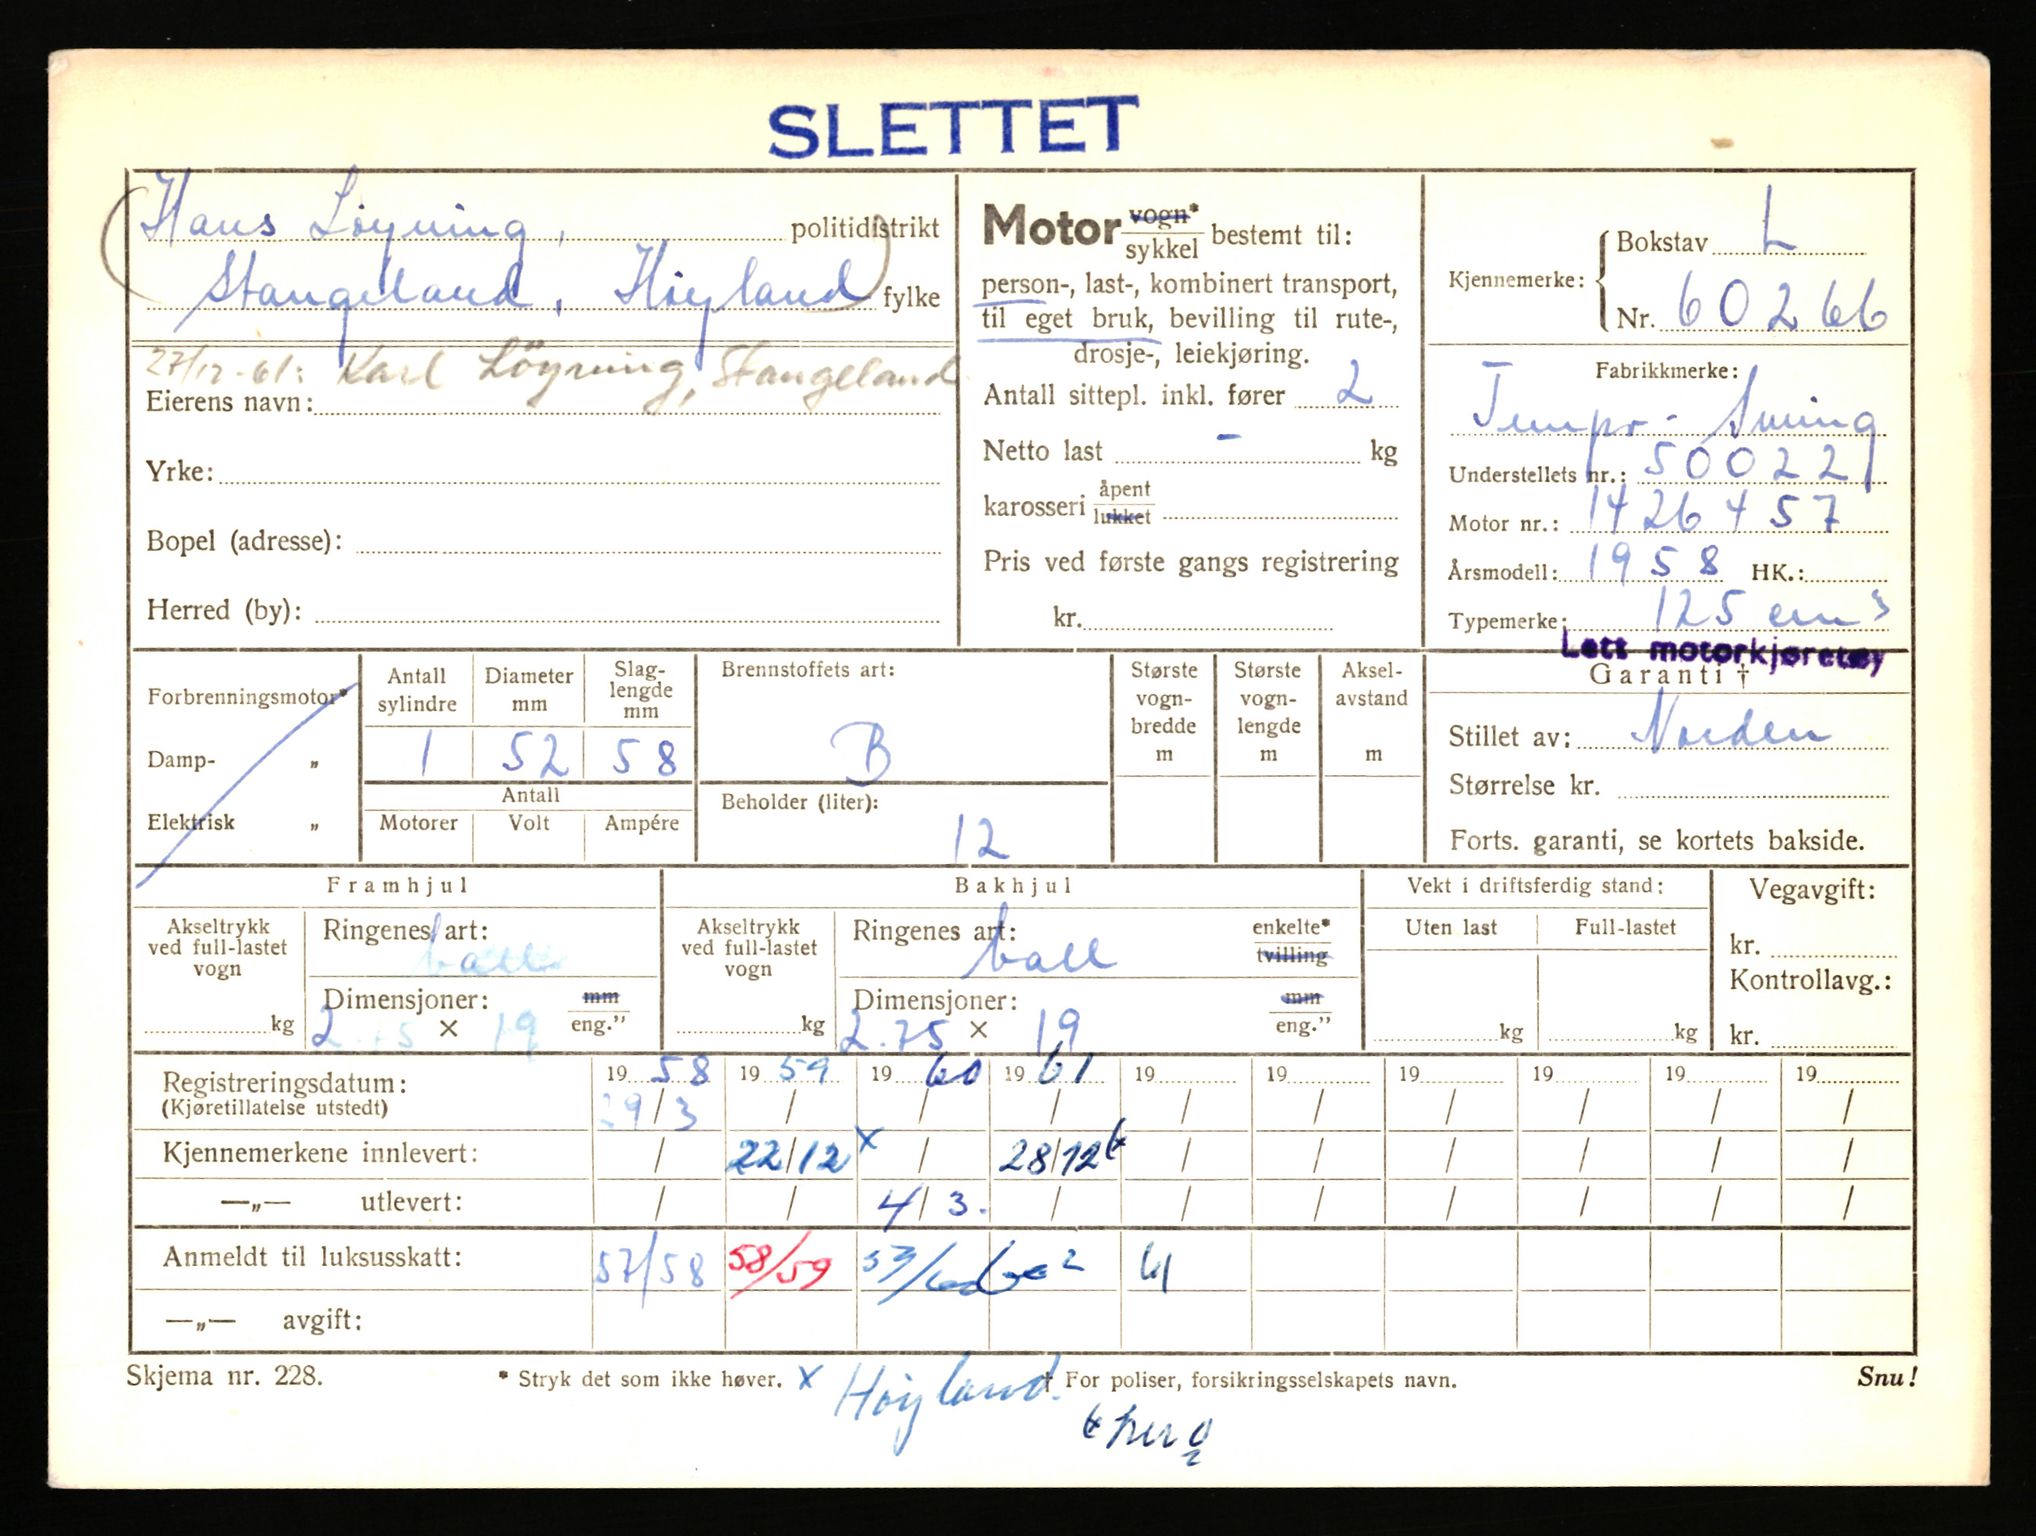 SLETTET
Hans Löyning, politidistrikt
Stangeland, Höyland fylke
27/12-61: Karl Löyning, Stangeland
Eierens navn:
Yrke:
Bopel (adresse):
Herred (by):
Motor vogn* / sykkel bestemt til:
person-, last-, kombinert transport,
til eget bruk, bevilling til rute-,
drosje-, leiekjøring.
Antall sittepl. inkl. fører 2
Netto last - kg
karosseri åpent / lukket
Pris ved første gangs registrering
kr.
Kjennemerke: Bokstav L
Nr. 60266
Fabrikkmerke:
Tempo - Swing
Understellets nr.: 500221
Motor nr.: 1426457
Årsmodell: 1958 HK.:
Typemerke: 125 cm3
Lett motorkjøretøy
Garanti †
Stillet av: Norden
Størrelse kr.
Forts. garanti, se kortets bakside.
Forbrenningsmotor*
Damp- „
Elektrisk „
Antall sylindre Diameter mm Slag-lengde mm
1 52 58
Antall
Motorer Volt Ampére
Brennstoffets art:
B
Beholder (liter):
12
Største vogn-bredde m
Største vogn-lengde m
Aksel-avstand m
Framhjul
Akseltrykk ved full-lastet vogn
kg
Ringenes art:
ball
Dimensjoner: mm / eng.”
2.75 × 19
Bakhjul
Akseltrykk ved full-lastet vogn
kg
Ringenes art: enkelte* / tvilling
ball
Dimensjoner: mm / eng.”
2.75 × 19
Vekt i driftsferdig stand:
Uten last Full-lastet
kg kg
Vegavgift:
kr.
Kontrollavg.:
kr.
Registreringsdatum: 19 58 19 59 19 60 19 61 19 19 19 19 19 19
(Kjøretillatelse utstedt) 29/3 / / / / / / / / /
Kjennemerkene innlevert: / 22/12 x / 28/12 / / / / / /
—„— utlevert: / / 4/3. / / / / / / /
Anmeldt til luksusskatt: 57/58 58/59 61
—„— avgift:
Skjema nr. 228. * Stryk det som ikke høver. † For poliser, forsikringsselskapets navn. Snu!
x Höyland.